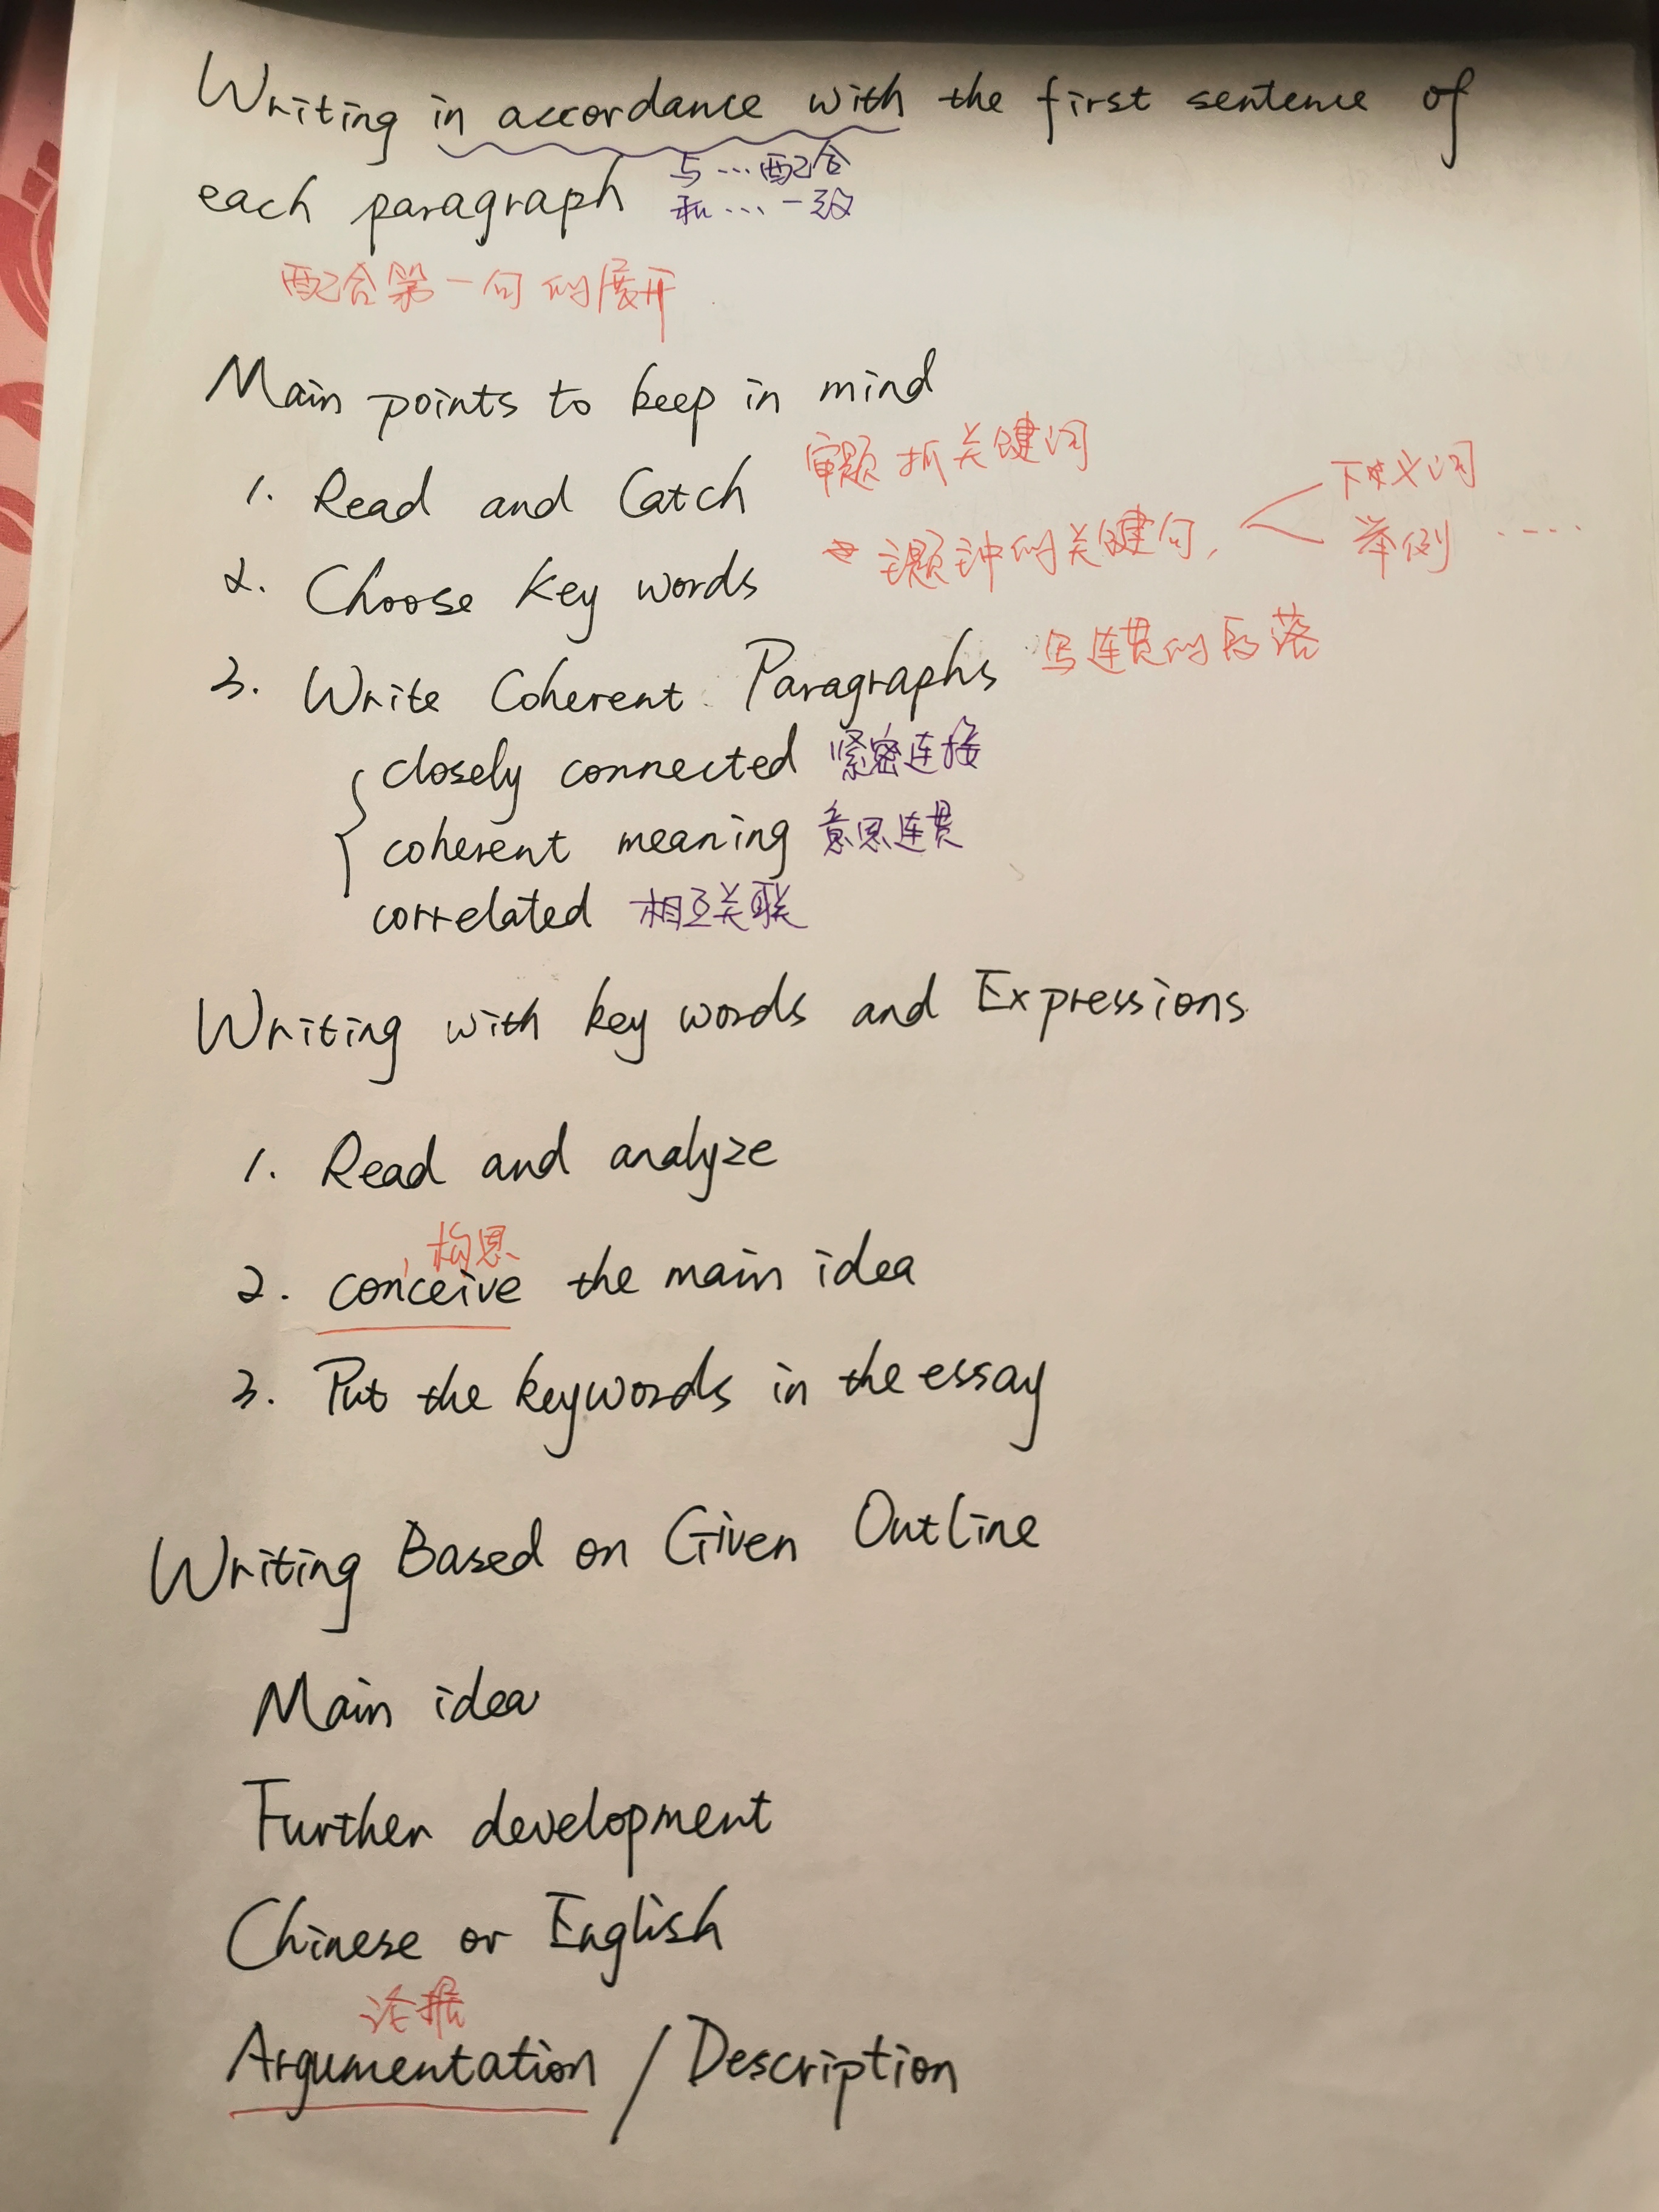 Writing in accordance with the first sentence of
与…配合
each paragraph 和…一致
配合第一句的展开
Main points to keep in mind
1. Read and Catch 审题抓关键词
下义词
2. Choose key words 主题中的关键句, 举例 ....
3. Write Coherent Paragraphs 写连贯的段落
closely connected 紧密连接
coherent meaning 意思连贯
correlated 相互关联
Writing with key words and Expressions
1. Read and analyze
构思
2. conceive the main idea
3. Put the keywords in the essay
Writing Based on Given Outline
Main idea
Further development
Chinese or English
论据
Argumentation / Description